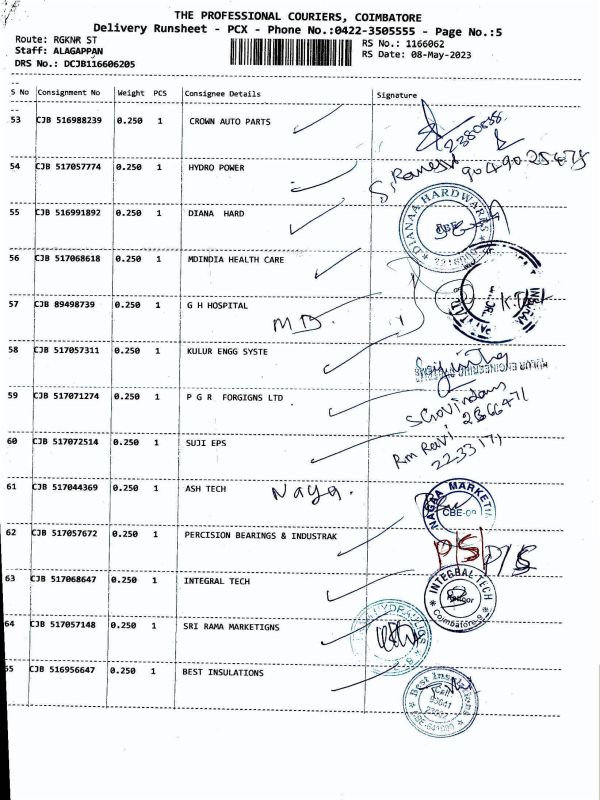 THE PROFESSIONAL COURIERS, COIMBATORE
Delivery Runsheet - PCX - Phone No.:0422-3505555 - Page No.:5
Route: RGKNR ST
Staff: ALAGAPPAN
DRS No.: DCJB116606205
RS No.: 1166062
RS Date: 08-May-2023
S No Consignment No Weight PCS Consignee Details Signature
53 CJB 516988239 0.250 1 CROWN AUTO PARTS
54 CJB 517057774 0.250 1 HYDRO POWER
S. Ramesh
55 CJB 516991892 0.250 1 DIANA HARD
DIANAA HARDWARES
CBE
56 CJB 517068618 0.250 1 MDINDIA HEALTH CARE
57 CJB 89498739 0.250 1 G H HOSPITAL
M D.
58 CJB 517057311 0.250 1 KULUR ENGG SYSTE
59 CJB 517071274 0.250 1 P G R FORGIGNS LTD
S Govindan
2366471
60 CJB 517072514 0.250 1 SUJI EPS
Rm Ravi
2233171
61 CJB 517044369 0.250 1 ASH TECH
Naga.
NAGAA MARKETIN
62 CJB 517057672 0.250 1 PERCISION BEARINGS & INDUSTRAK
P/S P/S
63 CJB 517068647 0.250 1 INTEGRAL TECH
INTEGRAL-TECH
Coimbatore-9
64 CJB 517057148 0.250 1 SRI RAMA MARKETIGNS
HYDRAULICS
65 CJB 516956647 0.250 1 BEST INSULATIONS
Best Insulations
Cell: